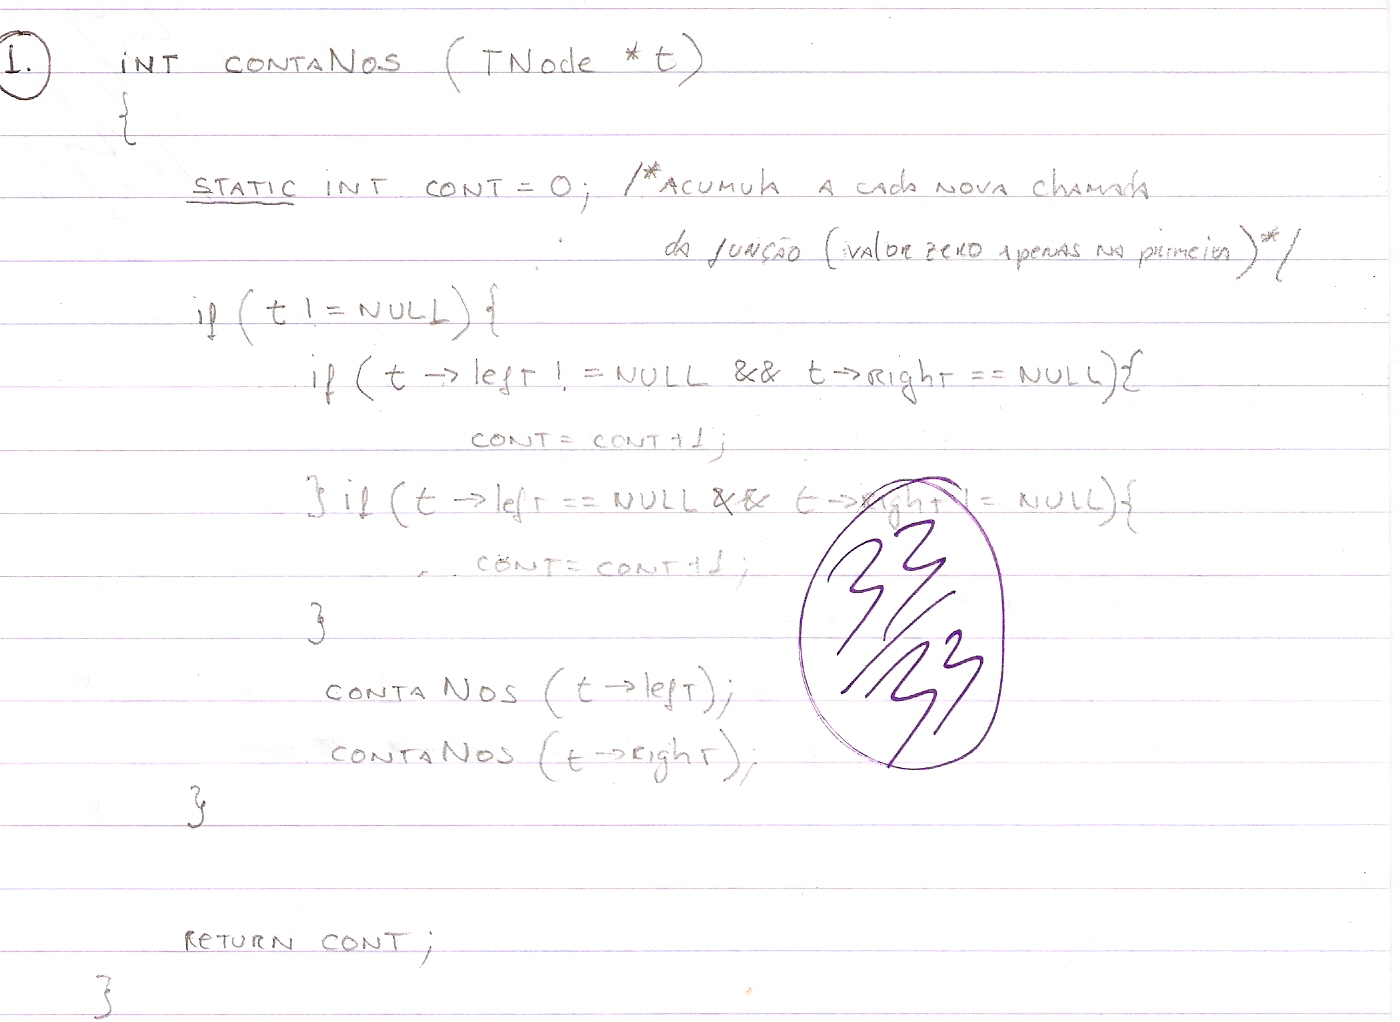 1. INT CONTANOS (TNode *t)
{
STATIC INT CONT = 0; /*ACUMULA A CADA NOVA CHAMADA
DA FUNÇÃO (VALOR ZERO APENAS NA PRIMEIRA)*/
if (t != NULL){
if (t -> left != NULL && t->Right == NULL){
CONT = CONT +1;
} if (t -> left == NULL && t->Right != NULL){
CONT = CONT +1;
}
CONTA NOS (t->left);
CONTANOS (t->Right);
}
RETURN CONT;
}